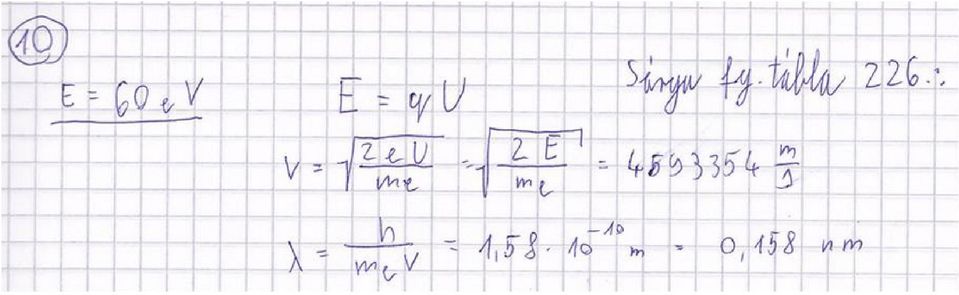 10
E = 60 eV E = qU Sárga fg. tábla 226.:
v = √(2eU/me) = √(2E/me) = 4593354 m/s
λ = h/(me v) = 1,58 · 10⁻¹⁰ m = 0,158 nm